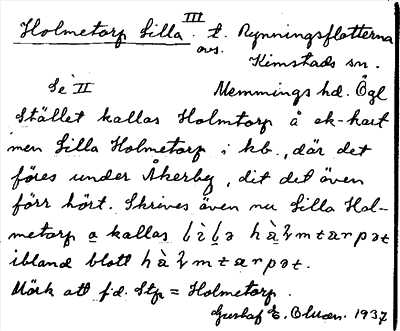 III
Holmetorp Lilla. t. Rynningsflottorna
avs. Kimstads sn.
Se II Memmings hd. Ögl
Stället kallas Holmtorp å ek-kart
men Lilla Holmetorp i kb., där det
föres under Åkerby, dit det även
förr hört. Skrives även nu Lilla Hol-
metorp o kallas
ibland blott
Märk att f.d. Stp = Holmetorp.
Gustaf E. Olsson. 1937